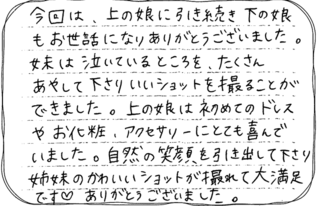 今回は、上の娘に引き続き下の娘
もお世話になりありがとうございました。
妹は泣いているところを、たくさん
あやして下さりいいショットを撮ることが
できました。上の娘は初めてのドレス
やお化粧、アクセサリーにとても喜んで
いました。自然の笑顔を引き出して下さり
姉妹のかわいいショットが撮れて大満足
です♡ ありがとうございました。